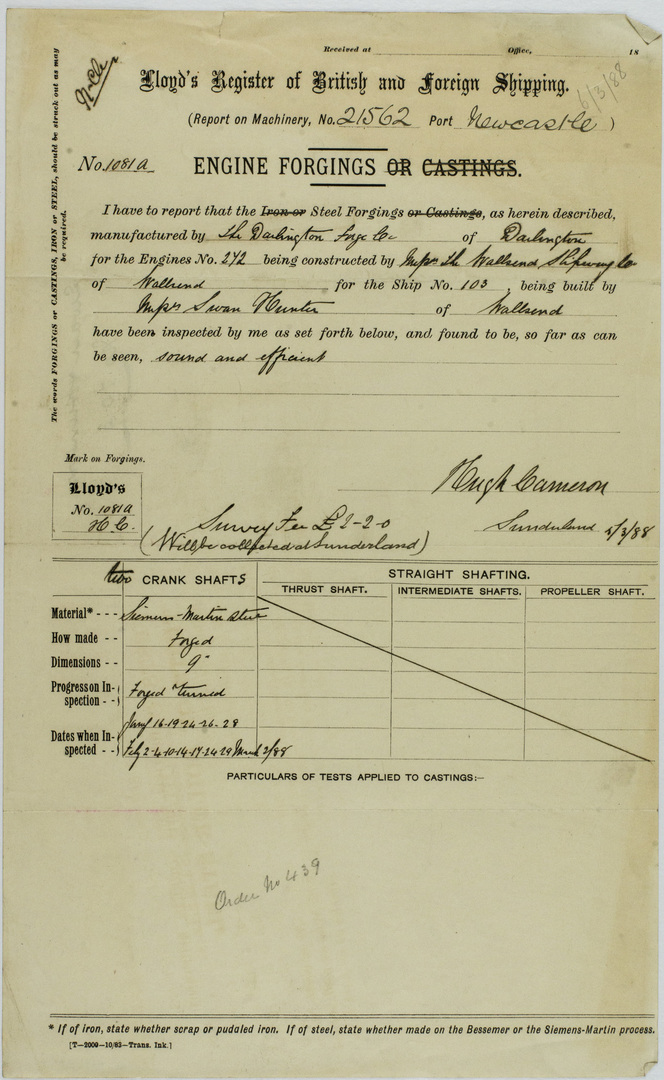 Received at Office, 18
6/3/88
Lloyd's Register of British and Foreign Shipping.
(Report on Machinery, No. 21562 Port Newcastle)
No. 1081A ENGINE FORGINGS OR CASTINGS.
The words FORGINGS or CASTINGS, IRON or STEEL, should be struck out as may
be required.
I have to report that the Iron or Steel Forgings or Castings, as herein described,
manufactured by The Darlington Forge Co of Darlington
for the Engines No. 272 being constructed by Messrs The Wallsend Slipway Co
of Wallsend for the Ship No. 103, being built by
Messrs Swan Hunter of Wallsend
have been inspected by me as set forth below, and found to be, so far as can
be seen, sound and efficient
Mark on Forgings.
Hugh Cameron
Lloyd's
No. 1081A
H.C.
Survey Fee £2-2-0
Sunderland 5/3/88
(Will be collected at Sunderland)
two CRANK SHAFTS STRAIGHT SHAFTING.
THRUST SHAFT. INTERMEDIATE SHAFTS. PROPELLER SHAFT.
Material* - - - Siemens-Martin Steel
How made - - Forged
Dimensions - - 9"
Progress on In-spection - - Forged & turned
Dates when In-spected - - Jany 16-19-24-26-28
Feby 2-4-10-14-17-24-29 March 2/88
PARTICULARS OF TESTS APPLIED TO CASTINGS:—
Order No 439
* If of iron, state whether scrap or pudaled iron. If of steel, state whether made on the Bessemer or the Siemens-Martin process.
[T—2009—10/83—Trans. Ink.]